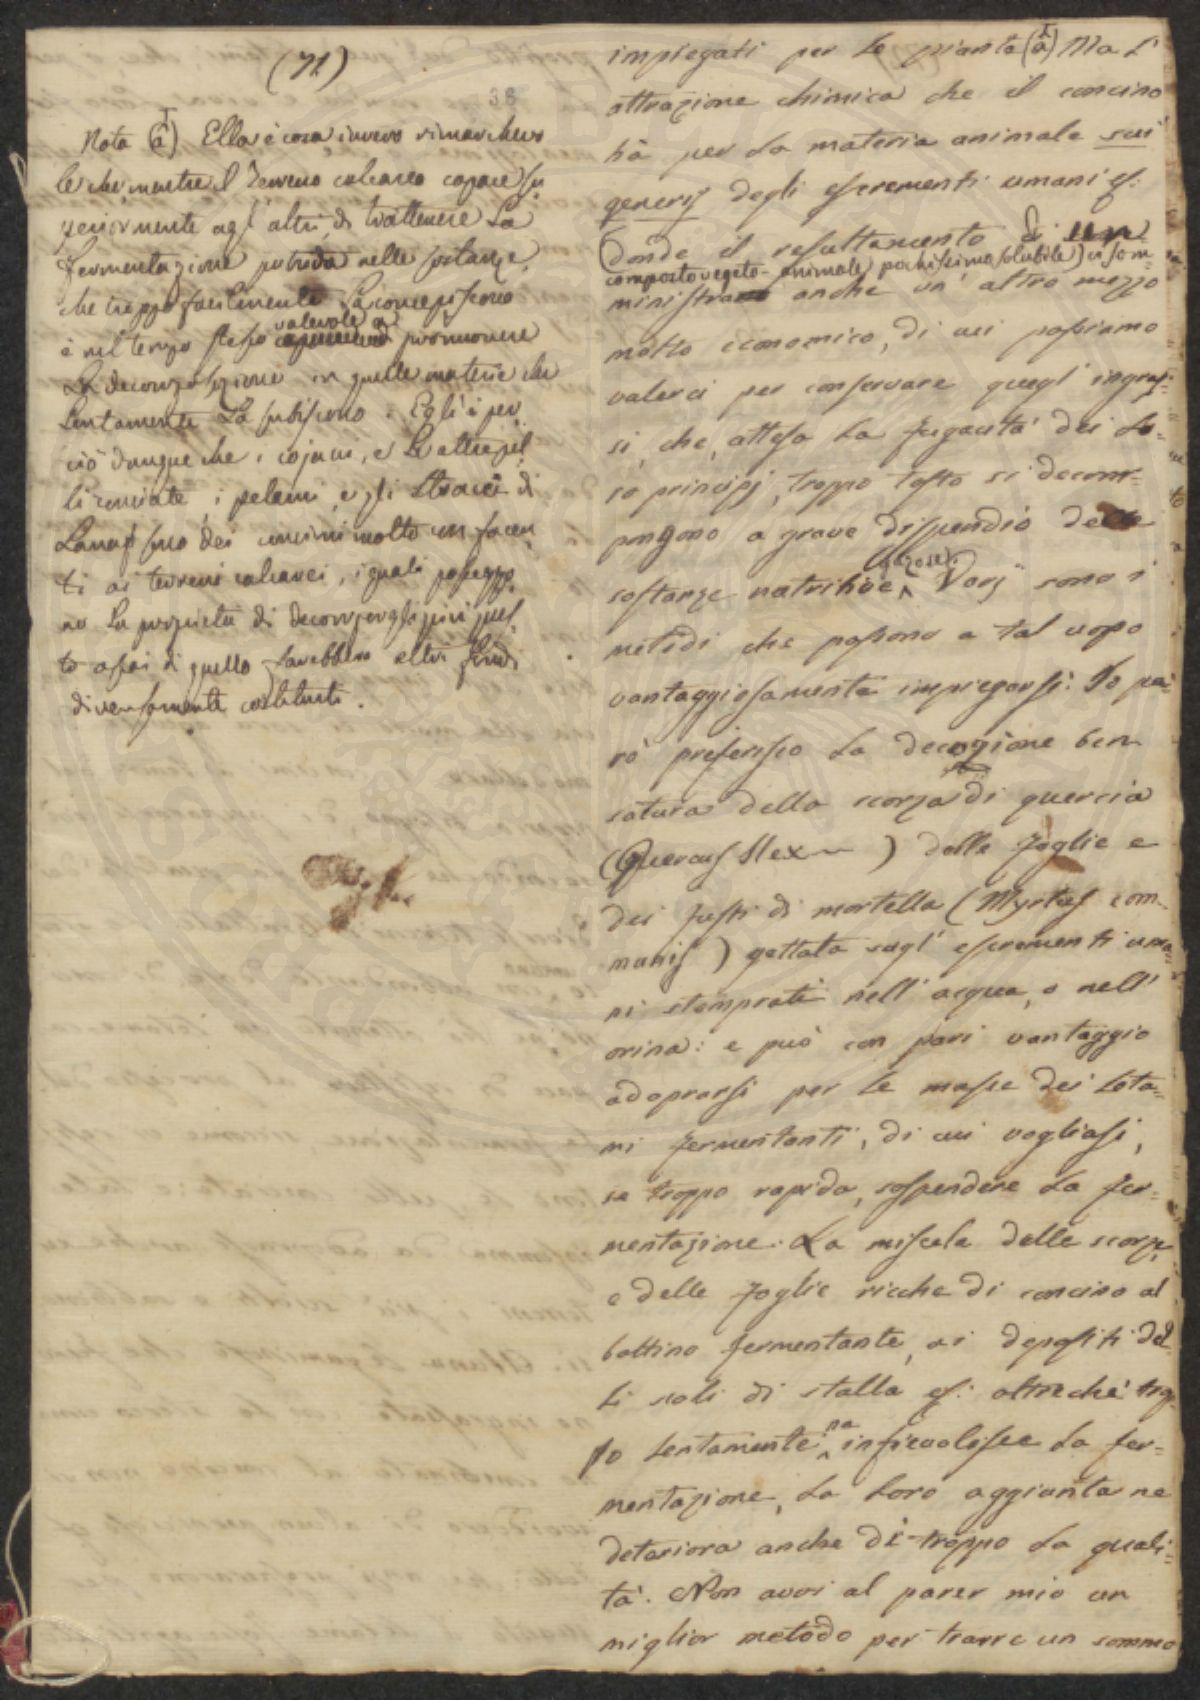 (71)
38
Nota (a) Ella è cosa invero rimarchevo
le che mentre il Terreno calcareo capace su
periormente agl'altri di trattenere La
fermentazione putrida nelle sostanze,
che troppo facilmente La concepiscono
è nel tempo stesso valevole a promuovere
La decomposizione in quelle materie che
Lentamente La subiscono: Egl'è per
ciò dunque che i cojami, e Le altre pel
li conciate, i pelami, e gli stracci di
Lana sono dei concimi molto confacen
ti ai terreni calcarei, i quali posseggo
no La proprietà di decomporgli più pres
to assai di quello farebbero altri fondi
diversamente costituiti.
impiegati per Le piante (a) Ma L'
attrazione chimica che il concino
hà per La materia animale sui
generis degli escrementi umani &:
(Donde il resultamento di un
composto vegeto-animale pochissimo solubile) ci som-
ministra anche un' altro mezzo
molto economico, di cui possiamo
valerci per conservare quegl' ingras-
si, che, attesa La fugacità dei Lo-
ro principj, troppo tosto si decom-
pongono a grave dispendio delle
sostanze nutritive gazose. Varj sono i
metodi che possono a tal uopo
vantaggiosamente impiegarsi: Io pe-
rò preferisco La decozione ben
satura della scorza di quercia
(Quercus Ilex ) delle foglie e
dei fusti di mortella (Myrtus com-
munis) gettata sugl' escrementi uma-
ni stemprati nell' acqua, o nell'
orina: e può con pari vantaggio
adoprarsi per Le masse dei Leta-
mi fermentanti, di cui vogliasi,
se troppo rapida, sospendere La fer-
mentazione. La miscela delle scorze,
e delle foglie ricche di concino al
bottino fermentante, ai depositi del-
li scoli di stalla &: oltrechè trop-
po Lentamente ne infievolisce La fer-
mentazione, La Loro aggiunta ne
deteriora anche di troppo La quali-
tà. Non avvi al parer mio un
miglior metodo per trarre un sommo